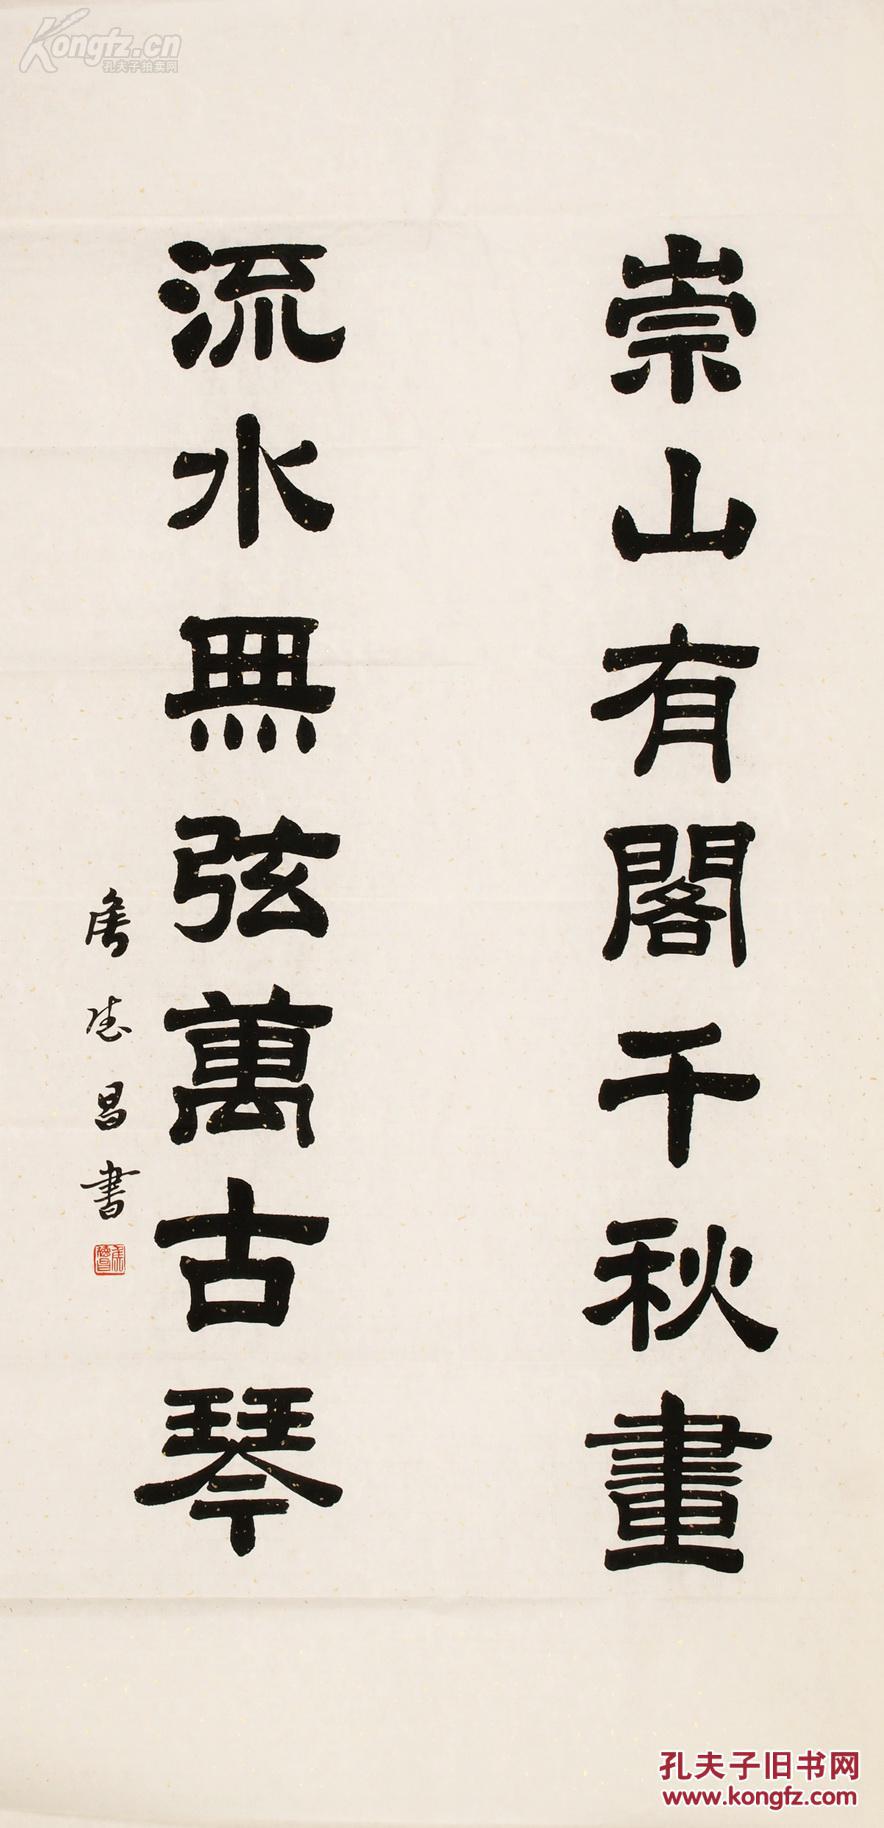 崇山有閣千秋畫
流水無弦萬古琴
德昌書
Kongfz.cn
孔夫子拍卖网
孔夫子旧书网
www.kongfz.com